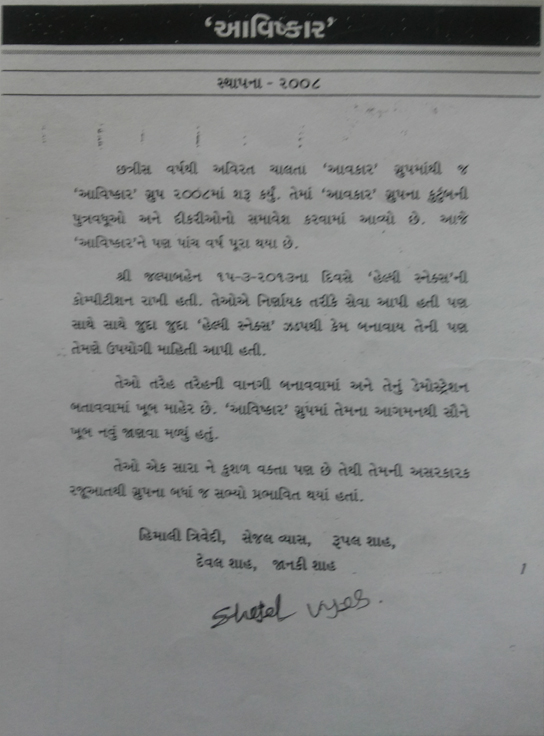 ‘આવિષ્કાર’
સ્થાપના - ૨૦૦૮
છત્રીસ વર્ષથી અવિરત ચાલતા ‘આવકાર’ ગ્રુપમાંથી જ
‘આવિષ્કાર’ ગ્રુપ ૨૦૦૮માં શરૂ કર્યું. તેમાં ‘આવકાર’ ગ્રુપના કુટુંબની
પુત્રવધૂઓ અને દીકરીઓનો સમાવેશ કરવામાં આવ્યો છે. આજે
‘આવિષ્કાર’ને પણ પાંચ વર્ષ પૂરા થયા છે.
શ્રી જલ્પાબહેન ૧૫-૩-૨૦૧૩ના દિવસે ‘હેલ્થી સ્નેક્સ’ની
કોમ્પીટીશન રાખી હતી. તેઓએ નિર્ણાયક તરીકે સેવા આપી હતી પણ
સાથે સાથે જુદા જુદા ‘હેલ્થી સ્નેક્સ’ ઝડપથી કેમ બનાવાય તેની પણ
તેમણે ઉપયોગી માહિતી આપી હતી.
તેઓ તરેહ તરેહની વાનગી બનાવવામાં અને તેનું ડેમોસ્ટ્રેશન
બતાવવામાં ખૂબ માહેર છે. ‘આવિષ્કાર’ ગ્રુપમાં તેમના આગમનથી સૌને
ખૂબ નવું જાણવા મળ્યું હતું.
તેઓ એક સારા ને કુશળ વક્તા પણ છે તેથી તેમની અસરકારક
રજૂઆતથી ગ્રુપના બધાં જ સભ્યો પ્રભાવિત થયાં હતાં.
હિમાલી ત્રિવેદી, સેજલ વ્યાસ, રૂપલ શાહ,
દેવલ શાહ, જાનકી શાહ
Shejel Vyas.